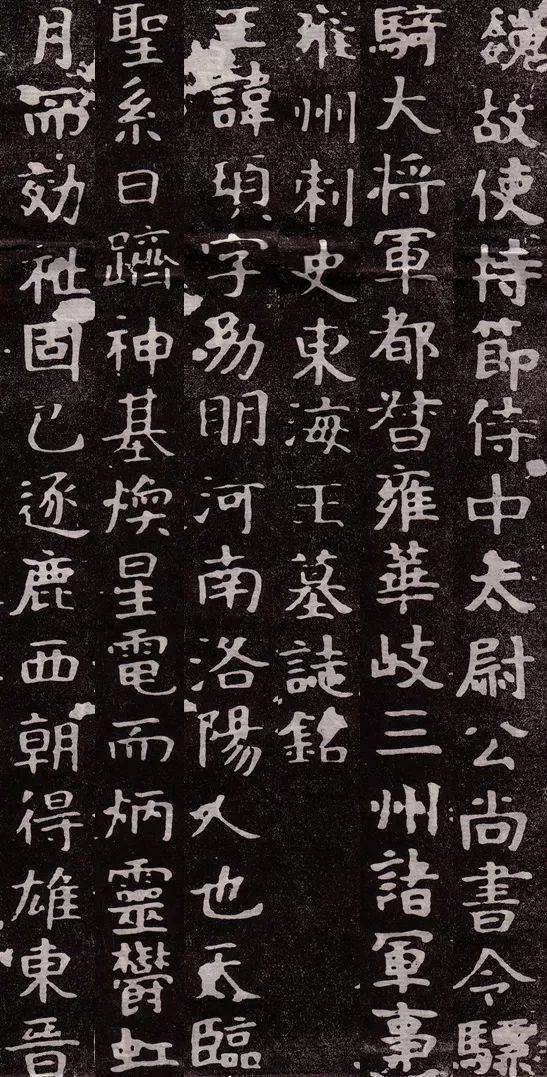 魏故使持節侍中太尉公尚書令驃
騎大将軍都督雍華岐三州諸軍事
雍州刺史東海王墓誌銘
王諱頊字勖明河南洛陽人也天臨
聖系日躋神基煥星電而炳靈鬱虹
月而効祉固已逐鹿西朝得雄東晉